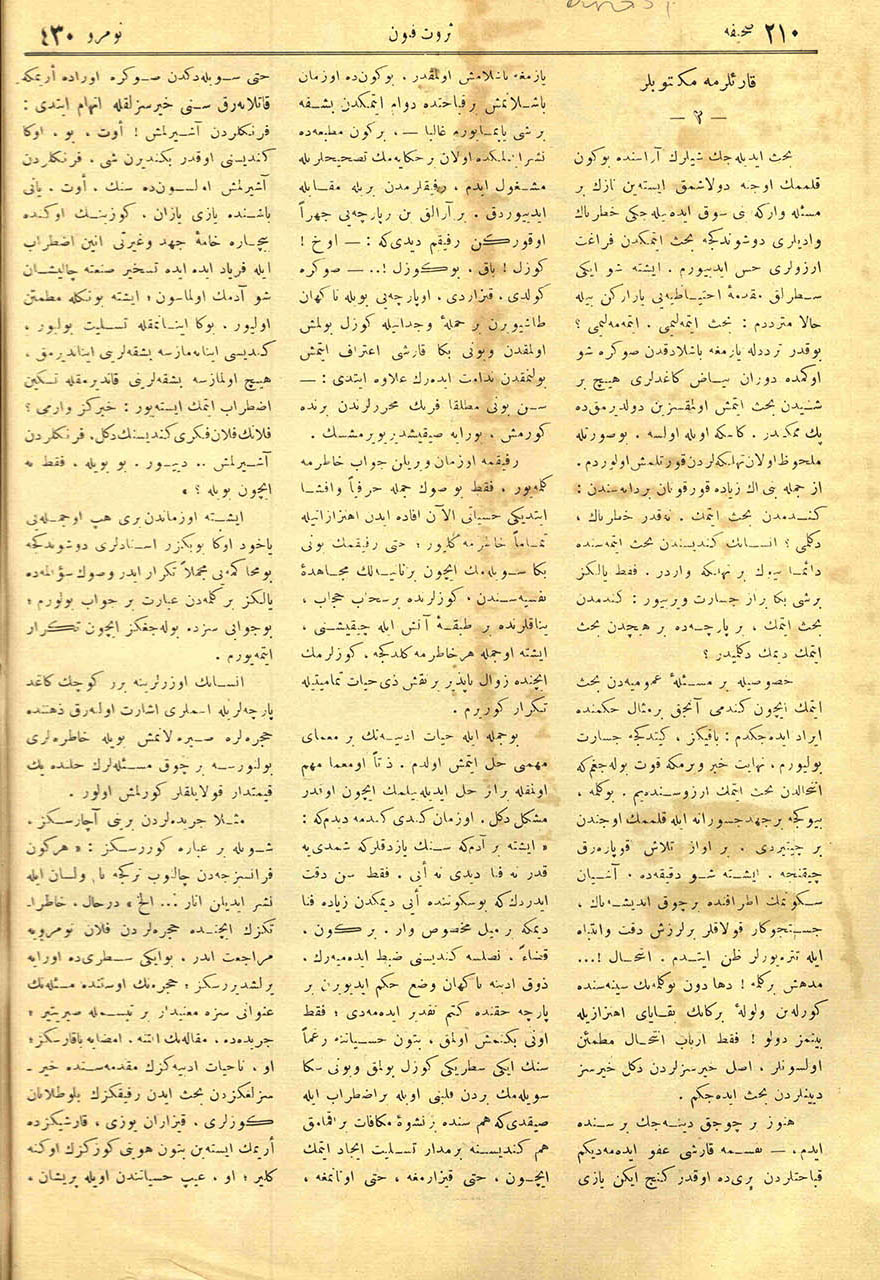 صحیفه ٢١٠
ثروت فنون
نومرو ٤٣٠
قارئلرمه مكتوبلر
— ٢ —
بحث ایدیله جك شیلرك آراسنده بوكون
قلممك اوجنه دولاشمق ایسته‌ین نازك بر
مسئله واركه بنی سوق ایده‌بیله‌جكی خطرناك
وادیلری دوشوندكجه بحث ایتمكدن فراغت
آرزولری حس ایدییورم . ایشته شو ایكی
سطرلق مقدمهٔ احتیاطیه‌یی یازاركن بیله
حالا مترددم : بحث ایتمه‌لیمی . ایتمه‌مه‌لیمی ؟
بوقدر تردد‌له یازمغه باشلادقدن صوكره شو
اوكمده دوران بیاض كاغدلری هیچ بر
شیئدن بحث ایتمش اولمقسزین دولدیرمق‌ده
پك ممكندر . كاشكه اویله اولسه . بوصورتله
ملحوظ اولان تهلكه‌لردن قورتلمش اولوردم .
از جمله بنی اك زیاده قورقوتان بردانه‌سندن :
كندمدن بحث ایتمك . نه‌قدر خطرناك ،
دكلمی ؟ انسانك كندیسندن بحث ایتمه‌سنده
دائما بیوك بر تهلكه واردر . فقط یالكز
برشی بكا براز جسارت ویریور : كندمدن
بحث ایتمك ، بر پارچه‌ده بر هیچدن بحث
ایتمك دیمك دكلمیدر ؟
خصوصیله بر مسئلهٔ عمومیه‌دن بحث
ایتمك ایچون كندمی آنجق برمثال حكمنده
ایراد ایده‌جكدم : باقیكز ، كیتدكجه جسارت
بولیورم ، نهایت خبر ویرمكه قوت بوله‌جغم‌كه
انتحالدن بحث ایتمك آرزوسنده‌یم . بوكله ،
بیوكجه برجهد جسورانه ایله قلممك اوجندن
بر چیتیردی . بر آواز تلاش قوپاره‌رق
چیقنجه . ایشته شو دقیقه‌ده ، آشیان
سكوتمك اطرافنده برچوق اندیشه‌ناك ،
جستجوكار قولاقلر برلرزش دقت وانتباه
ایله تتره‌یورلر ظن ایتدم . انتحال !...
مدهش بركله ! دها دون بوكله‌نك سینه‌سنده
كورله‌ین ولولهٔ بركانك بقایای اهتزازیله
بیتمز دولو ! فقط ارباب انتحال مطمئن
اولسونلر ، اصل خیرسزلردن دكل خیرسز
دینیلردن بحث ایده‌جكم .
هنوز بر چوجق دینه‌جك بر سنده
ایدم ، — نفسمه قارشی عفو ایده‌مدیكم
قباحتلردن بری‌ده اوقدر كنج ایكن یازی
یازمغه باشلامش اولمقدر . بوكون‌ده اوزمان
باشلانمش برقباحتده دوام ایتمكدن بشقه
بر شی یاپمایورم غالبا — ، بركون مطبعه‌ده
نشر ایدلمكده اولان برحكایه‌مك تصحیحلریله
مشغول ایدم ، رفیقلرمدن بریله مقابله
ایدییوردق . بر آرالق بن پارچه‌یی جهراً
اوقوركن رفیقم دیدی‌كه : — اوخ !
كوزل ! باق ، بوكوزل !.. — صوكره
كولدی ، قیزاردی ، اوپارچه‌یی بویله ناكهان
طاشیویرن بر حملهٔ وجدانیله كوزل بولمش
اولمقدن وبونی بكا قارشی اعتراف ایتمش
بولنمقدن ندامت ایده‌رك علاوه ایتدی : —
سن بونی مطلقا فرنك محررلرندن برنده
كورمش ، بورایه صیقیشدیریویرمشسك .
رفیقمه اوزمان ویریلن جواب خاطرمه
كلمه‌یور . فقط بو صوك جمله حرفیاً وافشا
ایتدیكی حسیاتی الآن افاده ایدن اهتزازاتیله
تماماً خاطرمه كلیور ؛ حتی رفیقمك بونی
بكا سویله‌مك ایچون برثانیه‌لك مجاهدهٔ
نفسیه‌سندن ، كوزلرنده برسحاب حجاب ،
یناقلرنده بر طبقهٔ آتش ایله چیقیشنی ،
ایشته اوجمله هرخاطرمه كلدكجه ، كوزلرمك
ایچنده زوال ناپذیر بر نقش ذی حیات تمامیتیله
تكرار كوررم .
بوجمله ایله حیات ادبیه‌نك بر معمای
مهمی حل ایتمش اولدم . ذاتاً اومعما مهم
اولمقله براز حل ایدیله‌بیلمك ایچون اوقدر
مشكل دكل . اوزمان كندی كندمه دیدم‌كه :
« ایشته بر آدم‌كه سنك یازدقلركه شمدی‌یه
قدر نه فنا دیدی نه ایی . فقط سن دقت
ایدردك‌كه بوسكوتنده ایی دیمكدن زیاده فنا
دیمكه بر میل مخصوص وار . بركون ،
قضاءً ، نصلسه كندیسنی ضبط ایده‌میه‌رك ،
ذوق ادبینه ناكهان وضع حكم ایدیویرن بر
پارچه حقنده كتم تقدیر ایده‌مه‌دی ؛ فقط
اونی بكنمش اولمق ، بتون حسیاتنه رغماً
سنك ایكی سطریكی كوزل بولمق وبونی سكا
سویله‌مك بردن قلبنی اویله براضطراب ایله
صیقدی‌كه هم سنده بر نشوهٔ مكافات براقمامق
هم كندیسنه برمدار تسلیت ایجاد ایتمك
ایچون ، حتی قیزارمغه ، حتی اوتانمغه ،
حتی سویله‌دكدن صوكره اوراده اریمكه
قاتلانه‌رق سنی خیرسزلقله اتهام ایتدی :
فرنكلردن آشیرلمش ! أوت ، بو ، اوكا
كندیسنی اوقدر بكندیرن شی . فرنكلردن
آشیرلمش اولسون‌ده سنك . أوت . یانی
باشنده یازی یازان ، كوزینك اوكنده
بیچاره خامهٔ جهد وغیرتی انین اضطراب
ایله فریاد ایده ایده تسخیر صنعته چالیشان
شو آدمك اولماسون ؛ ایشته بونكله مطمئن
اولیور . بوكا ایناتمقله تسلیت بولیور ،
كندیسی اینانمازسه بشقه‌لرینی ایناندیرمق ،
هیچ اولمازسه بشقه‌لرینی قاندیرمقله تسكین
اضطراب ایتمك ایسته‌یور : خبركز وارمی ؟
فلانك فلان فكری كندیسنك دكل . فرنكلردن
آشیرلمش .. دییور . بو بویله . فقط نه
ایچون بویله ؟ »
ایشته اوزماندنبری هپ اوجمله‌یی
یاخود اوكا بوبكزر اسنادلری دوشوندكجه
بومحاكمه‌یی مجملاً تكرار ایدر وصوك سؤالمه‌ده
یالكز بركله‌دن عبارت بر جواب بولورم ؛
بوجوابی سزده بوله‌جغكز ایچون تكرار
ایتمه‌یورم .
انسانك اوزرلرینه برر كوچك كاغد
پارچه‌لریله اسملری اشارت اولنه‌رق ذهننده
حجره‌لره صیره‌لانمش بویله خاطره‌لری
بولنورسه بر چوق مسئله‌لرك حلنده پك
قیمتدار قولایلقلر كورلمش اولور .
مثلا جریده‌لردن برینی آچارسكز ،
شویله بر عباره كوررسكز : « هركون
فرانسزجه‌دن چالنوب تركجه نام ولسان ایله
نشر ایدیلن آثار ... الخ » درحال ، خاطرا-
تكزك ایچنده حجره‌لردن فلان نومرویه
مراجعت ایدر . بوایكی سطری‌ده اورایه
یرلشدیررسكز ؛ حجره‌نك اوستنده مسئله‌نك
عنوانی سزه معنیدار بر تبسمله صیریتیر ؛
جریده‌ده ، مقاله‌نك آلتنه . امضایه باقارسكز ؛
او ، تاحیات ادبیه‌كزك مقدمه‌سنده خیر-
سزلغكزدن بحث ایدن رفیقكزك بلوطلانان
كوزلری ، قیزاران یوزی ، قارشیكزده
أریمك ایسته‌ین بتون هویتی كوزكزك اوكنه
كلیر ؛ او ، عیب حسیاتندن اویله پریشان ،